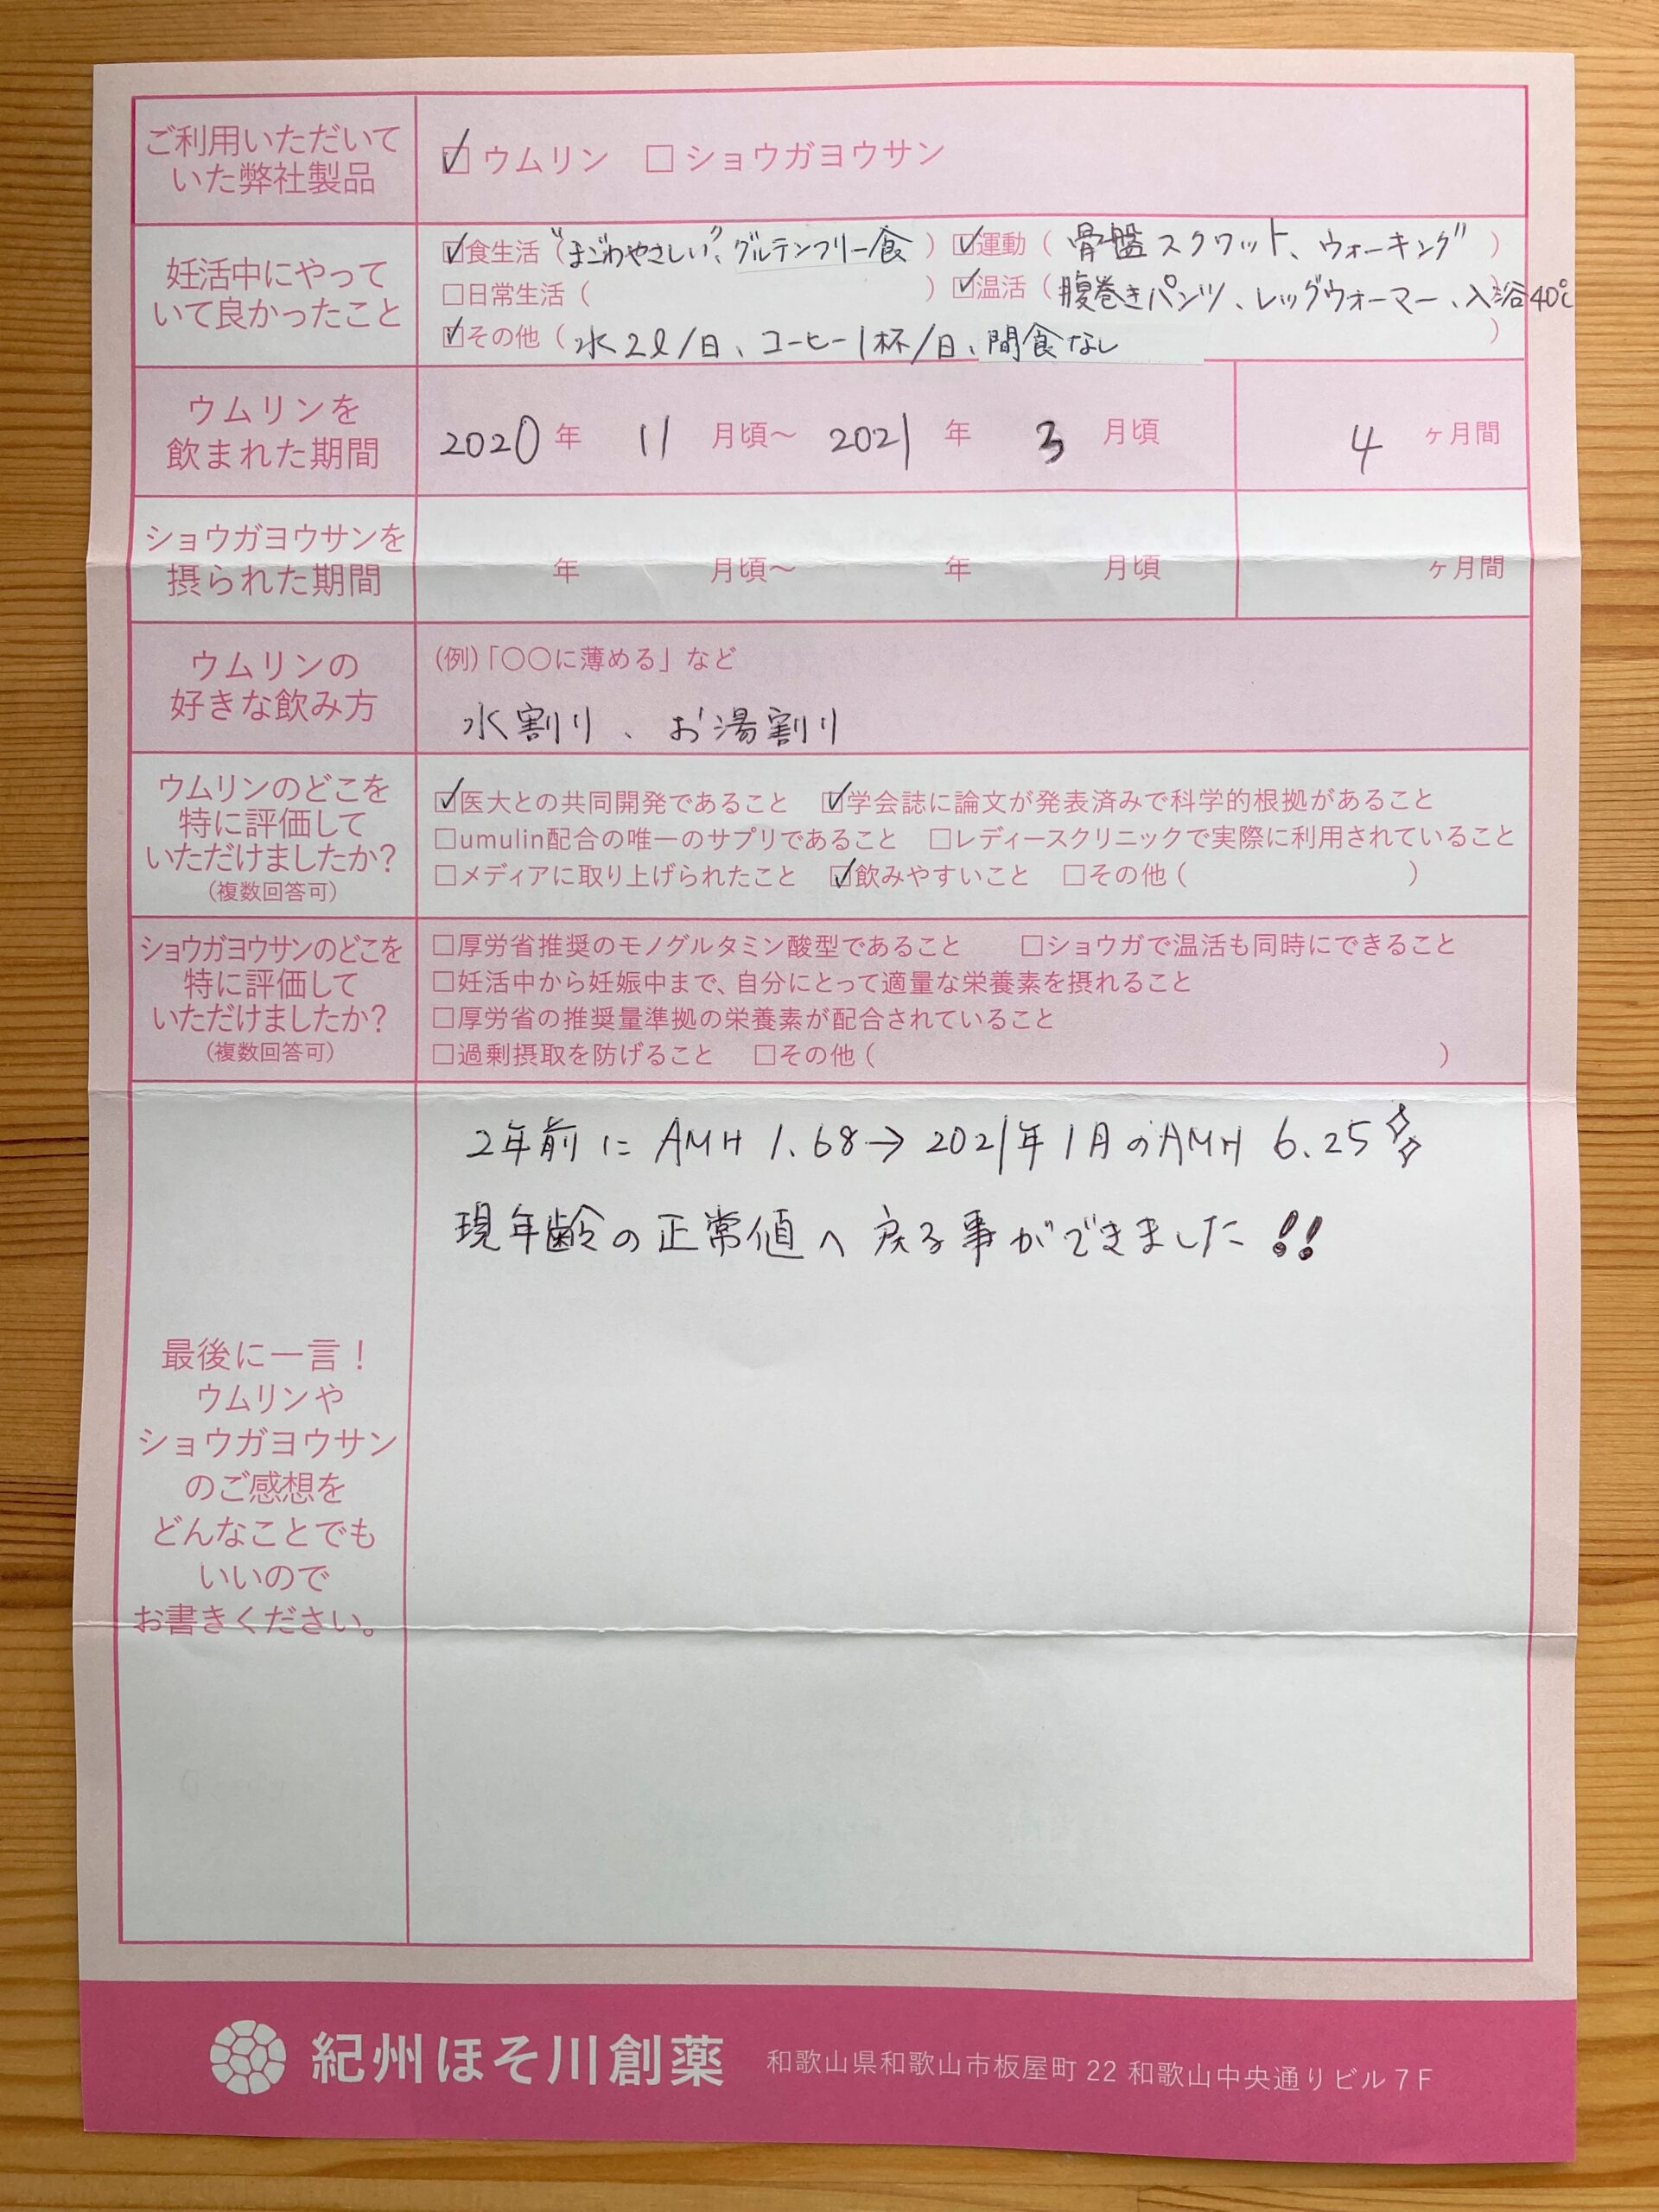 ご利用いただいて
いた弊社製品
☑ウムリン □ショウガヨウサン
妊活中にやって
いて良かったこと
☑食生活("まごわやさしい"、グルテンフリー食) ☑運動(骨盤スクワット、ウォーキング)
□日常生活( ) ☑温活(腹巻きパンツ、レッグウォーマー、入浴40℃)
☑その他(水2ℓ/日、コーヒー1杯/日、間食なし)
ウムリンを
飲まれた期間
2020年 11月頃〜2021年 3月頃 4ヶ月間
ショウガヨウサンを
摂られた期間
年 月頃〜 年 月頃 ヶ月間
ウムリンの
好きな飲み方
(例)「〇〇に薄める」など
水割り、お湯割り
ウムリンのどこを
特に評価して
いただけましたか?
(複数回答可)
☑医大との共同開発であること ☑学会誌に論文が発表済みで科学的根拠があること
□umulin配合の唯一のサプリであること □レディースクリニックで実際に利用されていること
□メディアに取り上げられたこと ☑飲みやすいこと □その他( )
ショウガヨウサンのどこを
特に評価して
いただけましたか?
(複数回答可)
□厚労省推奨のモノグルタミン酸型であること □ショウガで温活も同時にできること
□妊活中から妊娠中まで、自分にとって適量な栄養素を摂れること
□厚労省の推奨量準拠の栄養素が配合されていること
□過剰摂取を防げること □その他( )
最後に一言!
ウムリンや
ショウガヨウサン
のご感想を
どんなことでも
いいので
お書きください。
2年前に AMH 1.68→2021年1月のAMH 6.25
現年齢の正常値へ戻る事ができました!!
紀州ほそ川創薬 和歌山県和歌山市板屋町 22 和歌山中央通りビル 7 F